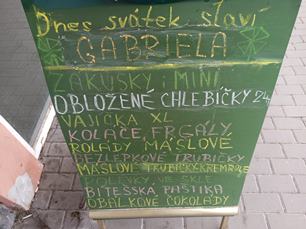 Dnes svátek slaví
GABRIELA
ZÁKUSKY i MINI
OBLOŽENÉ CHLEBÍČKY 24
VAJÍČKA XL
KOLÁČE, FRGÁLY,
ROLÁDY MÁSLOVÉ
BEZLEPKOVÉ TRUBIČKY
MÁSLOVÉ TRUBIČKY, KREMROLE
POLÉVKY VE SKLE
BÍTEŠSKÁ PAŠTIKA
OBÁLKOVÉ ČOKOLÁDY